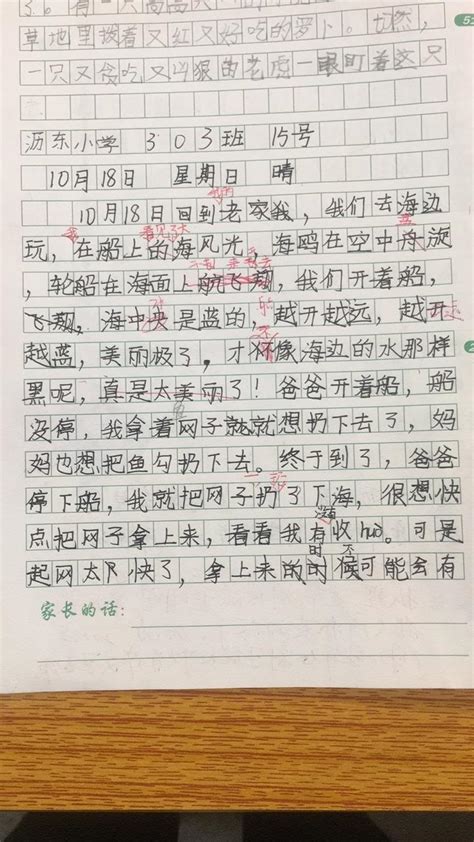 草地里拔着又红又好吃的萝卜。切然,
一只又贪吃又凶狠的老虎一眼盯着这只
沥东小学 303班 15号
10月18日 星期日 晴
10月18日回到老家我,我们去海边
玩,在船上的海风光,海鸥在空中舟旋
,轮船在海面上航飞翔,我们开着船,
飞翔,海中央是蓝的,越开越远,越开
越蓝,美丽极了,才怀像海边的水那样
黑呢,真是太美丽了!爸爸开着船,船
没停,我拿着网子就就想扔下去了,妈
妈也想把鱼勾扔下去。终于到了,爸爸
停下船,我就把网子扔了下海,很想快
点把网子拿上来,看看我有收huo。可是
起网太快了,拿上来的时候可能会有
家长的话: